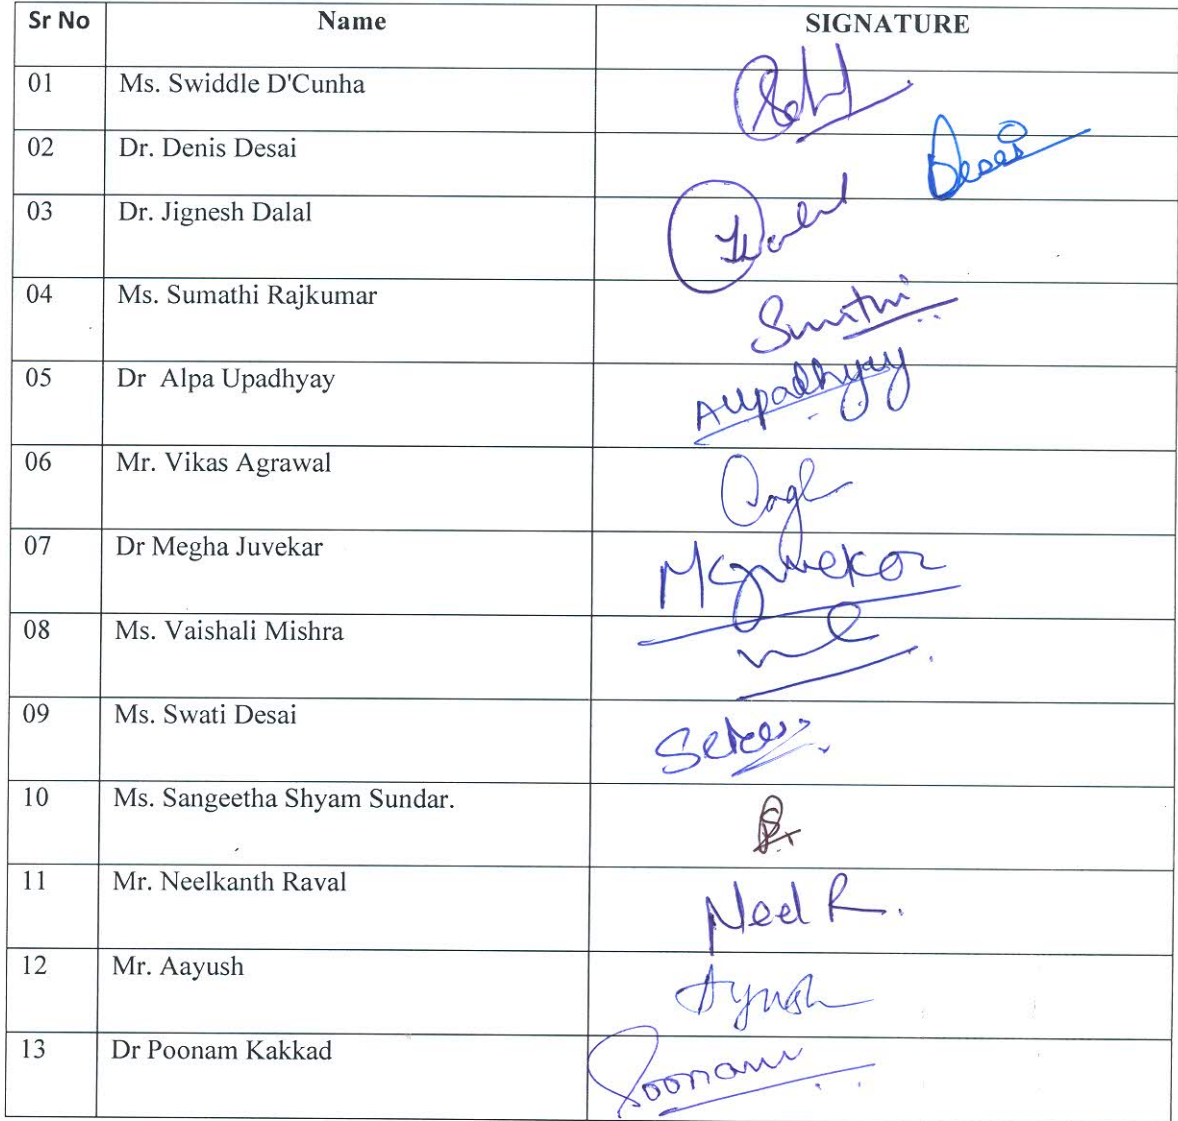 Sr No Name SIGNATURE
01 Ms. Swiddle D'Cunha
02 Dr. Denis Desai
03 Dr. Jignesh Dalal
04 Ms. Sumathi Rajkumar
05 Dr Alpa Upadhyay AUpadhyay
06 Mr. Vikas Agrawal
07 Dr Megha Juvekar
08 Ms. Vaishali Mishra
09 Ms. Swati Desai
10 Ms. Sangeetha Shyam Sundar.
11 Mr. Neelkanth Raval Neel R.
12 Mr. Aayush Ayush
13 Dr Poonam Kakkad Poonam